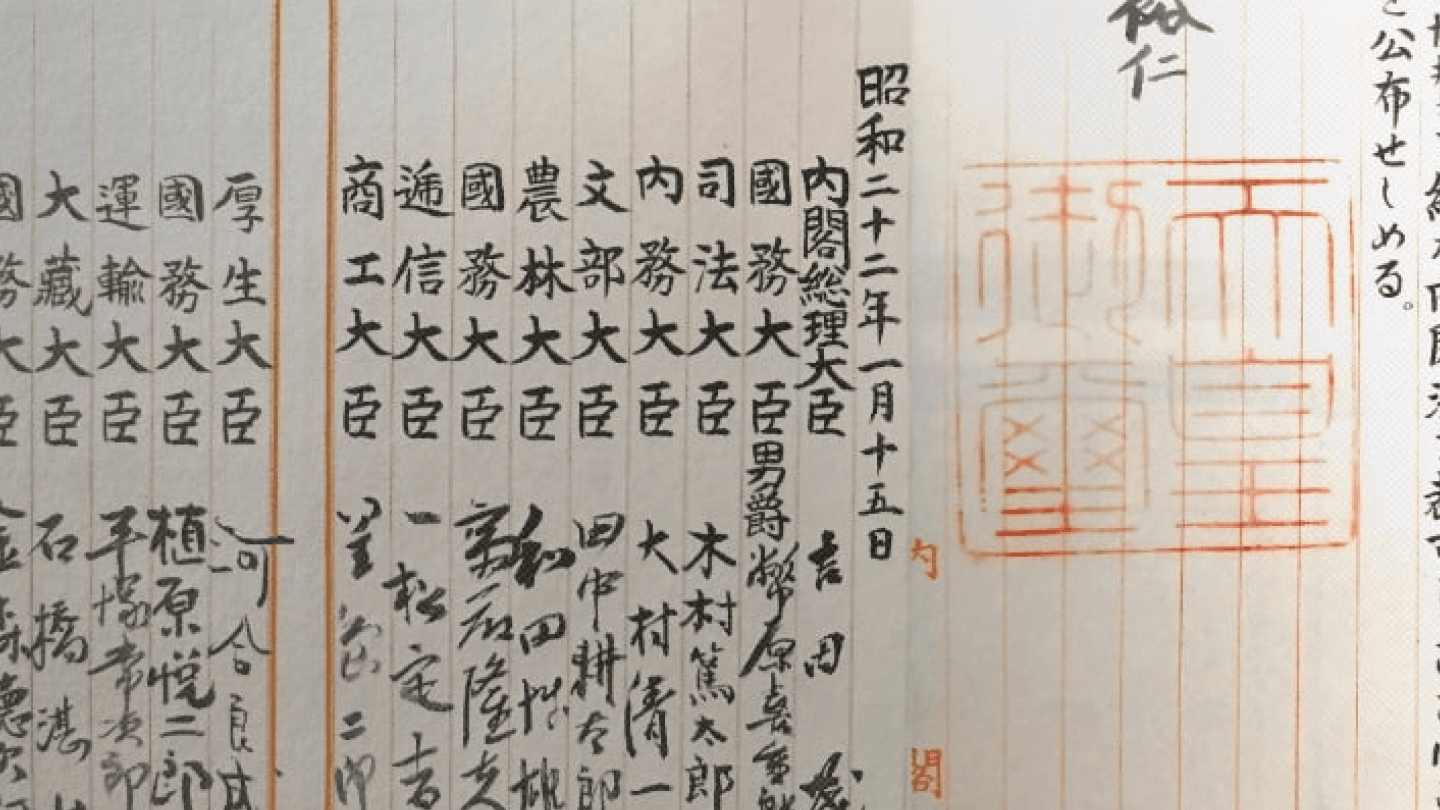 公布せしめる。
裕仁
天皇
御璽
内閣
昭和二十二年一月十五日
内閣総理大臣 吉田茂
國務大臣男爵幣原喜重郎
司法大臣 木村篤太郎
内務大臣 大村清一
文部大臣 田中耕太郎
農林大臣 和田博雄
國務大臣 斎藤隆夫
逓信大臣 一松定吉
商工大臣 星島二郎
厚生大臣 河合良成
國務大臣 植原悦二郎
運輸大臣 平塚常次郎
大藏大臣 石橋湛
國務大臣 金森德次